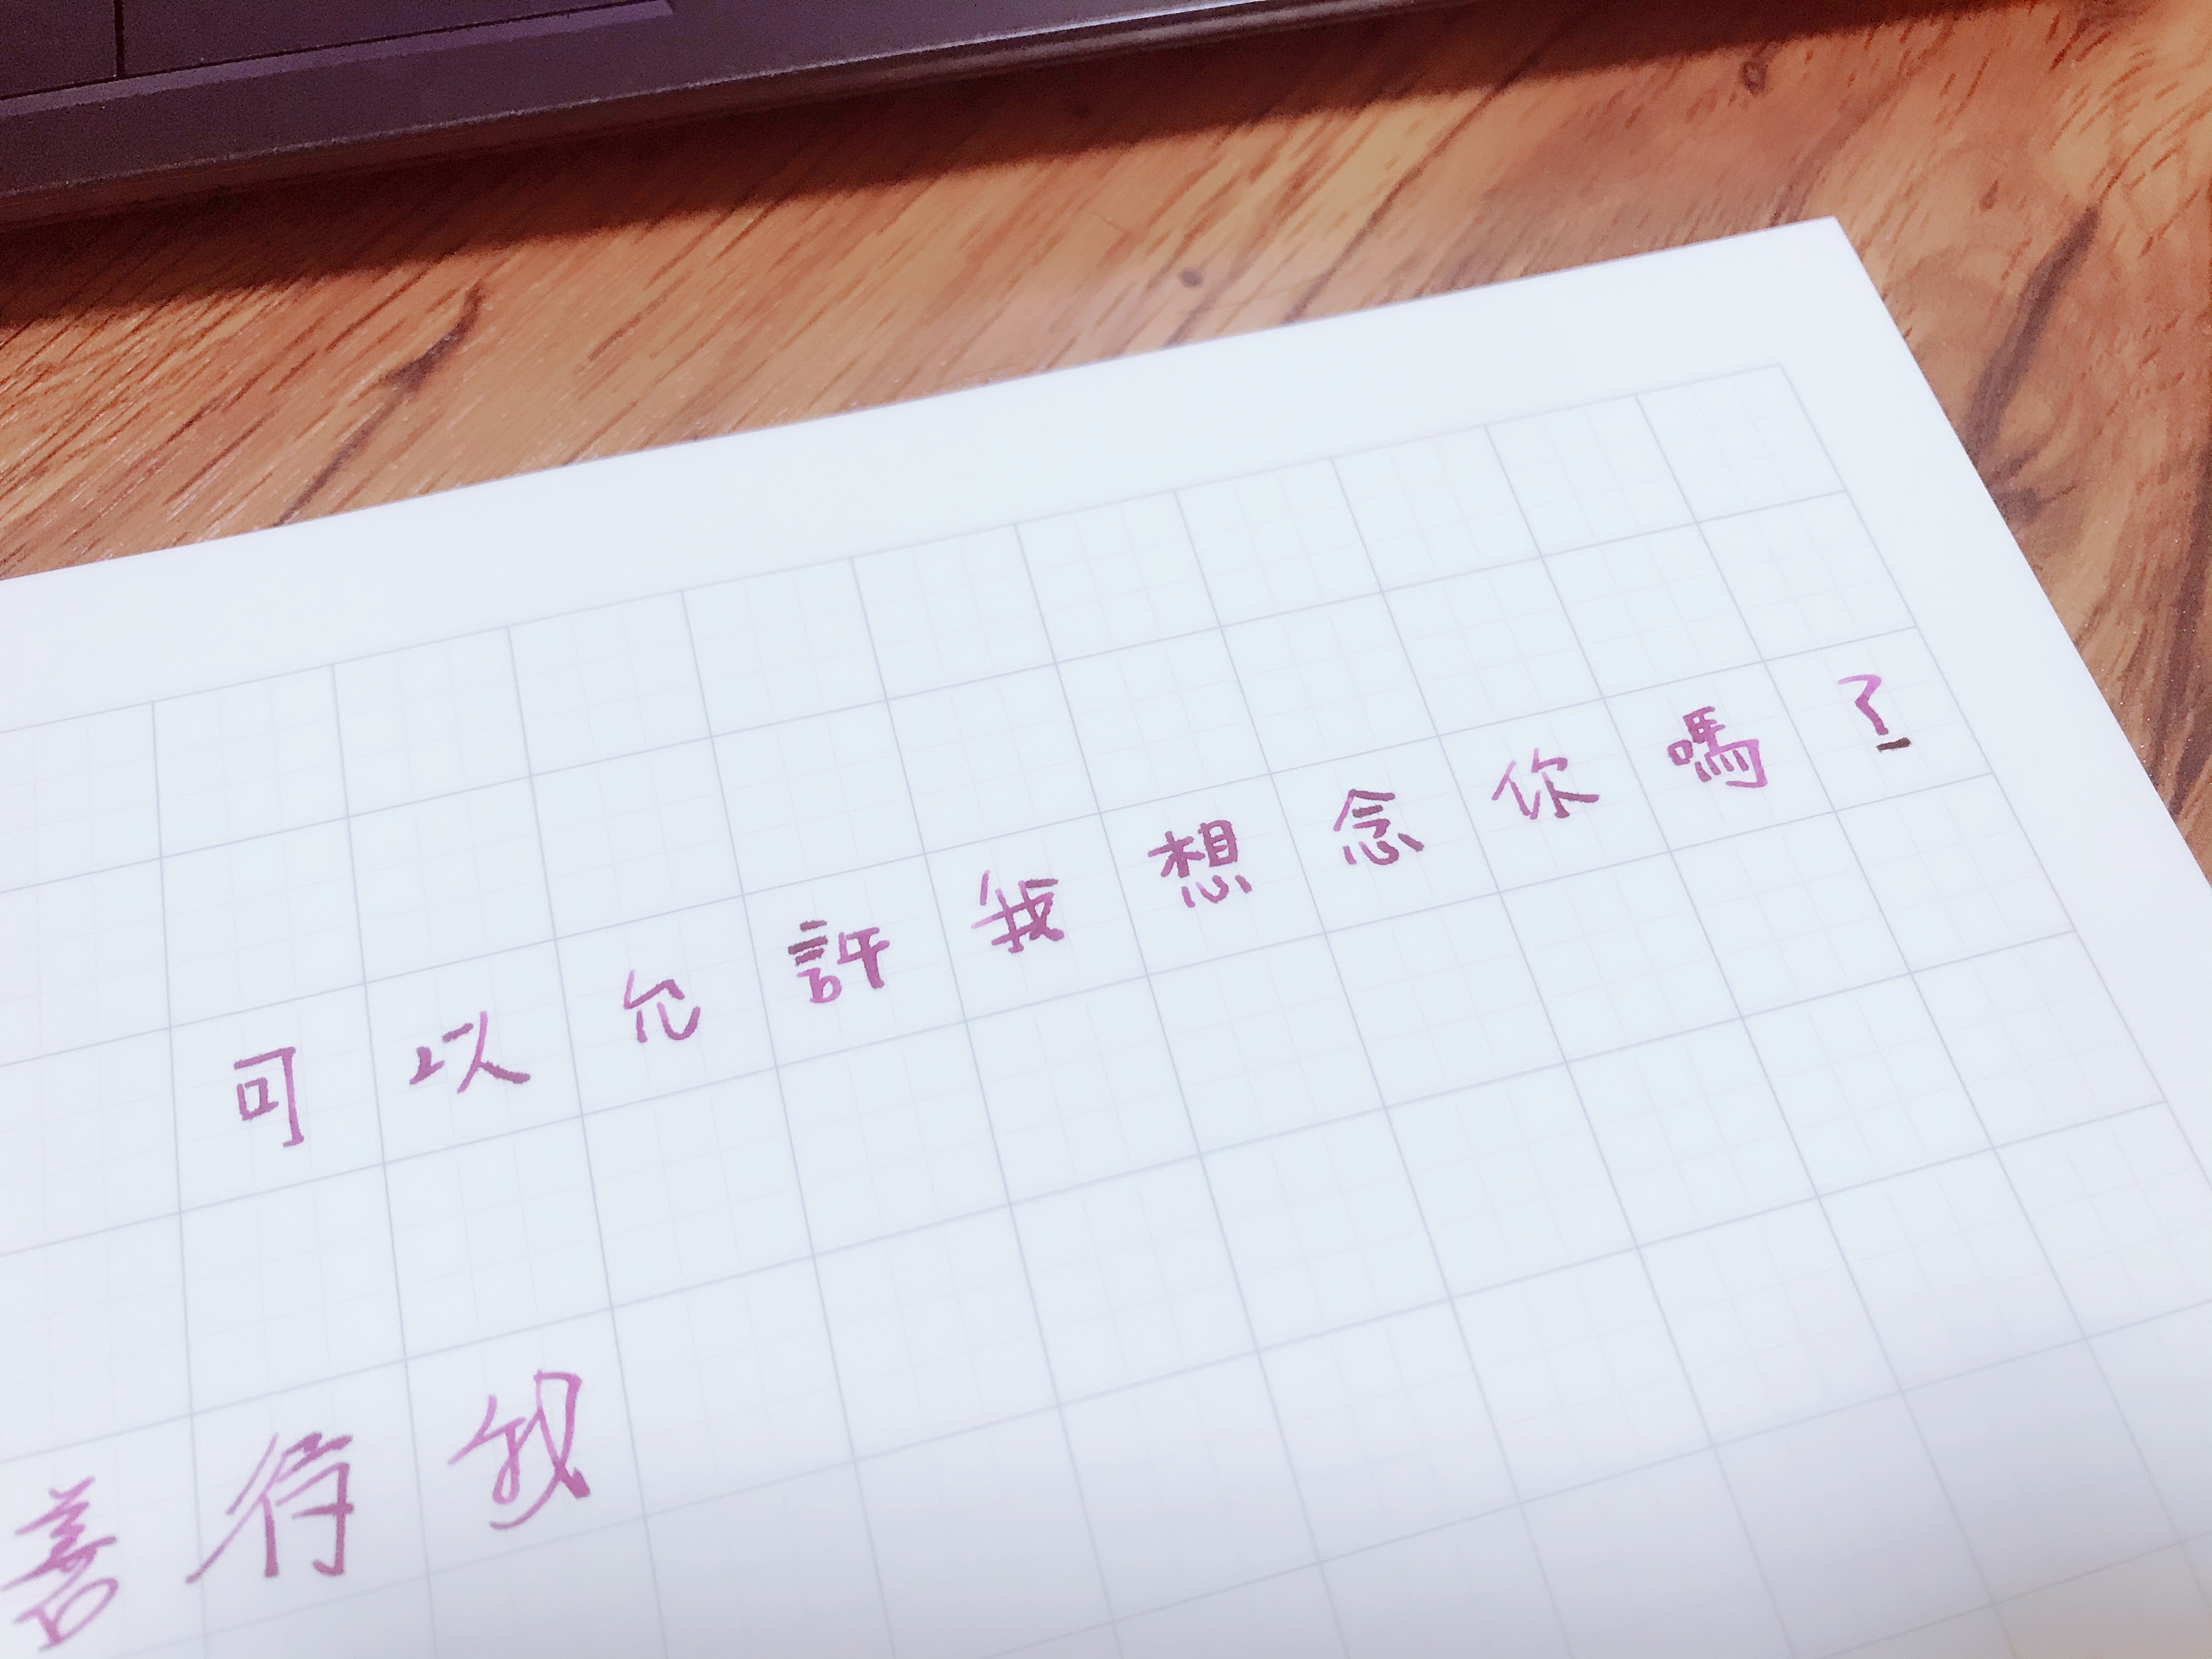 可以允許我想念你嗎？
善待我